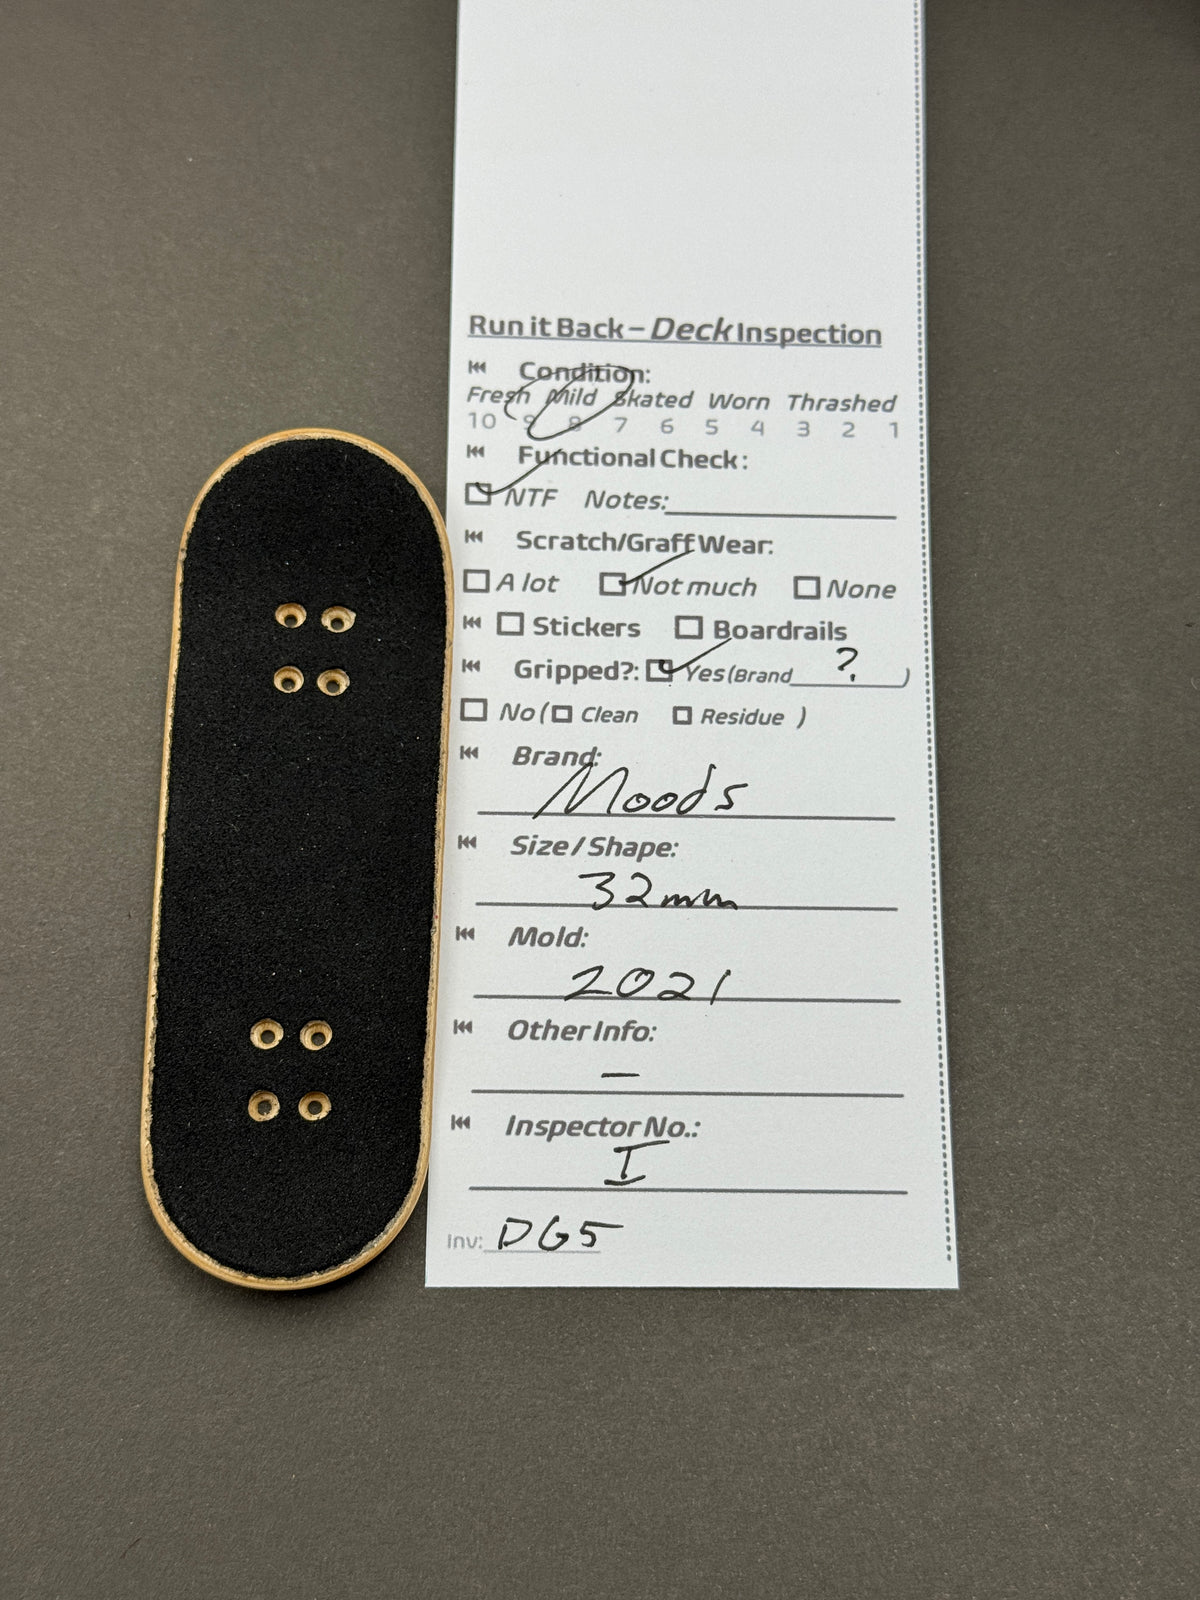 Run it Back – Deck Inspection
Condition:
Fresh Mild Skated Worn Thrashed
10 9 8 7 6 5 4 3 2 1
Functional Check:
NTF Notes:
Scratch/Graff Wear:
A lot Not much None
Stickers Boardrails
Gripped?: Yes (Brand ? )
No ( Clean Residue )
Brand:
Moods
Size / Shape:
32mm
Mold:
2021
Other Info:
—
Inspector No.:
I
Inv: DG5